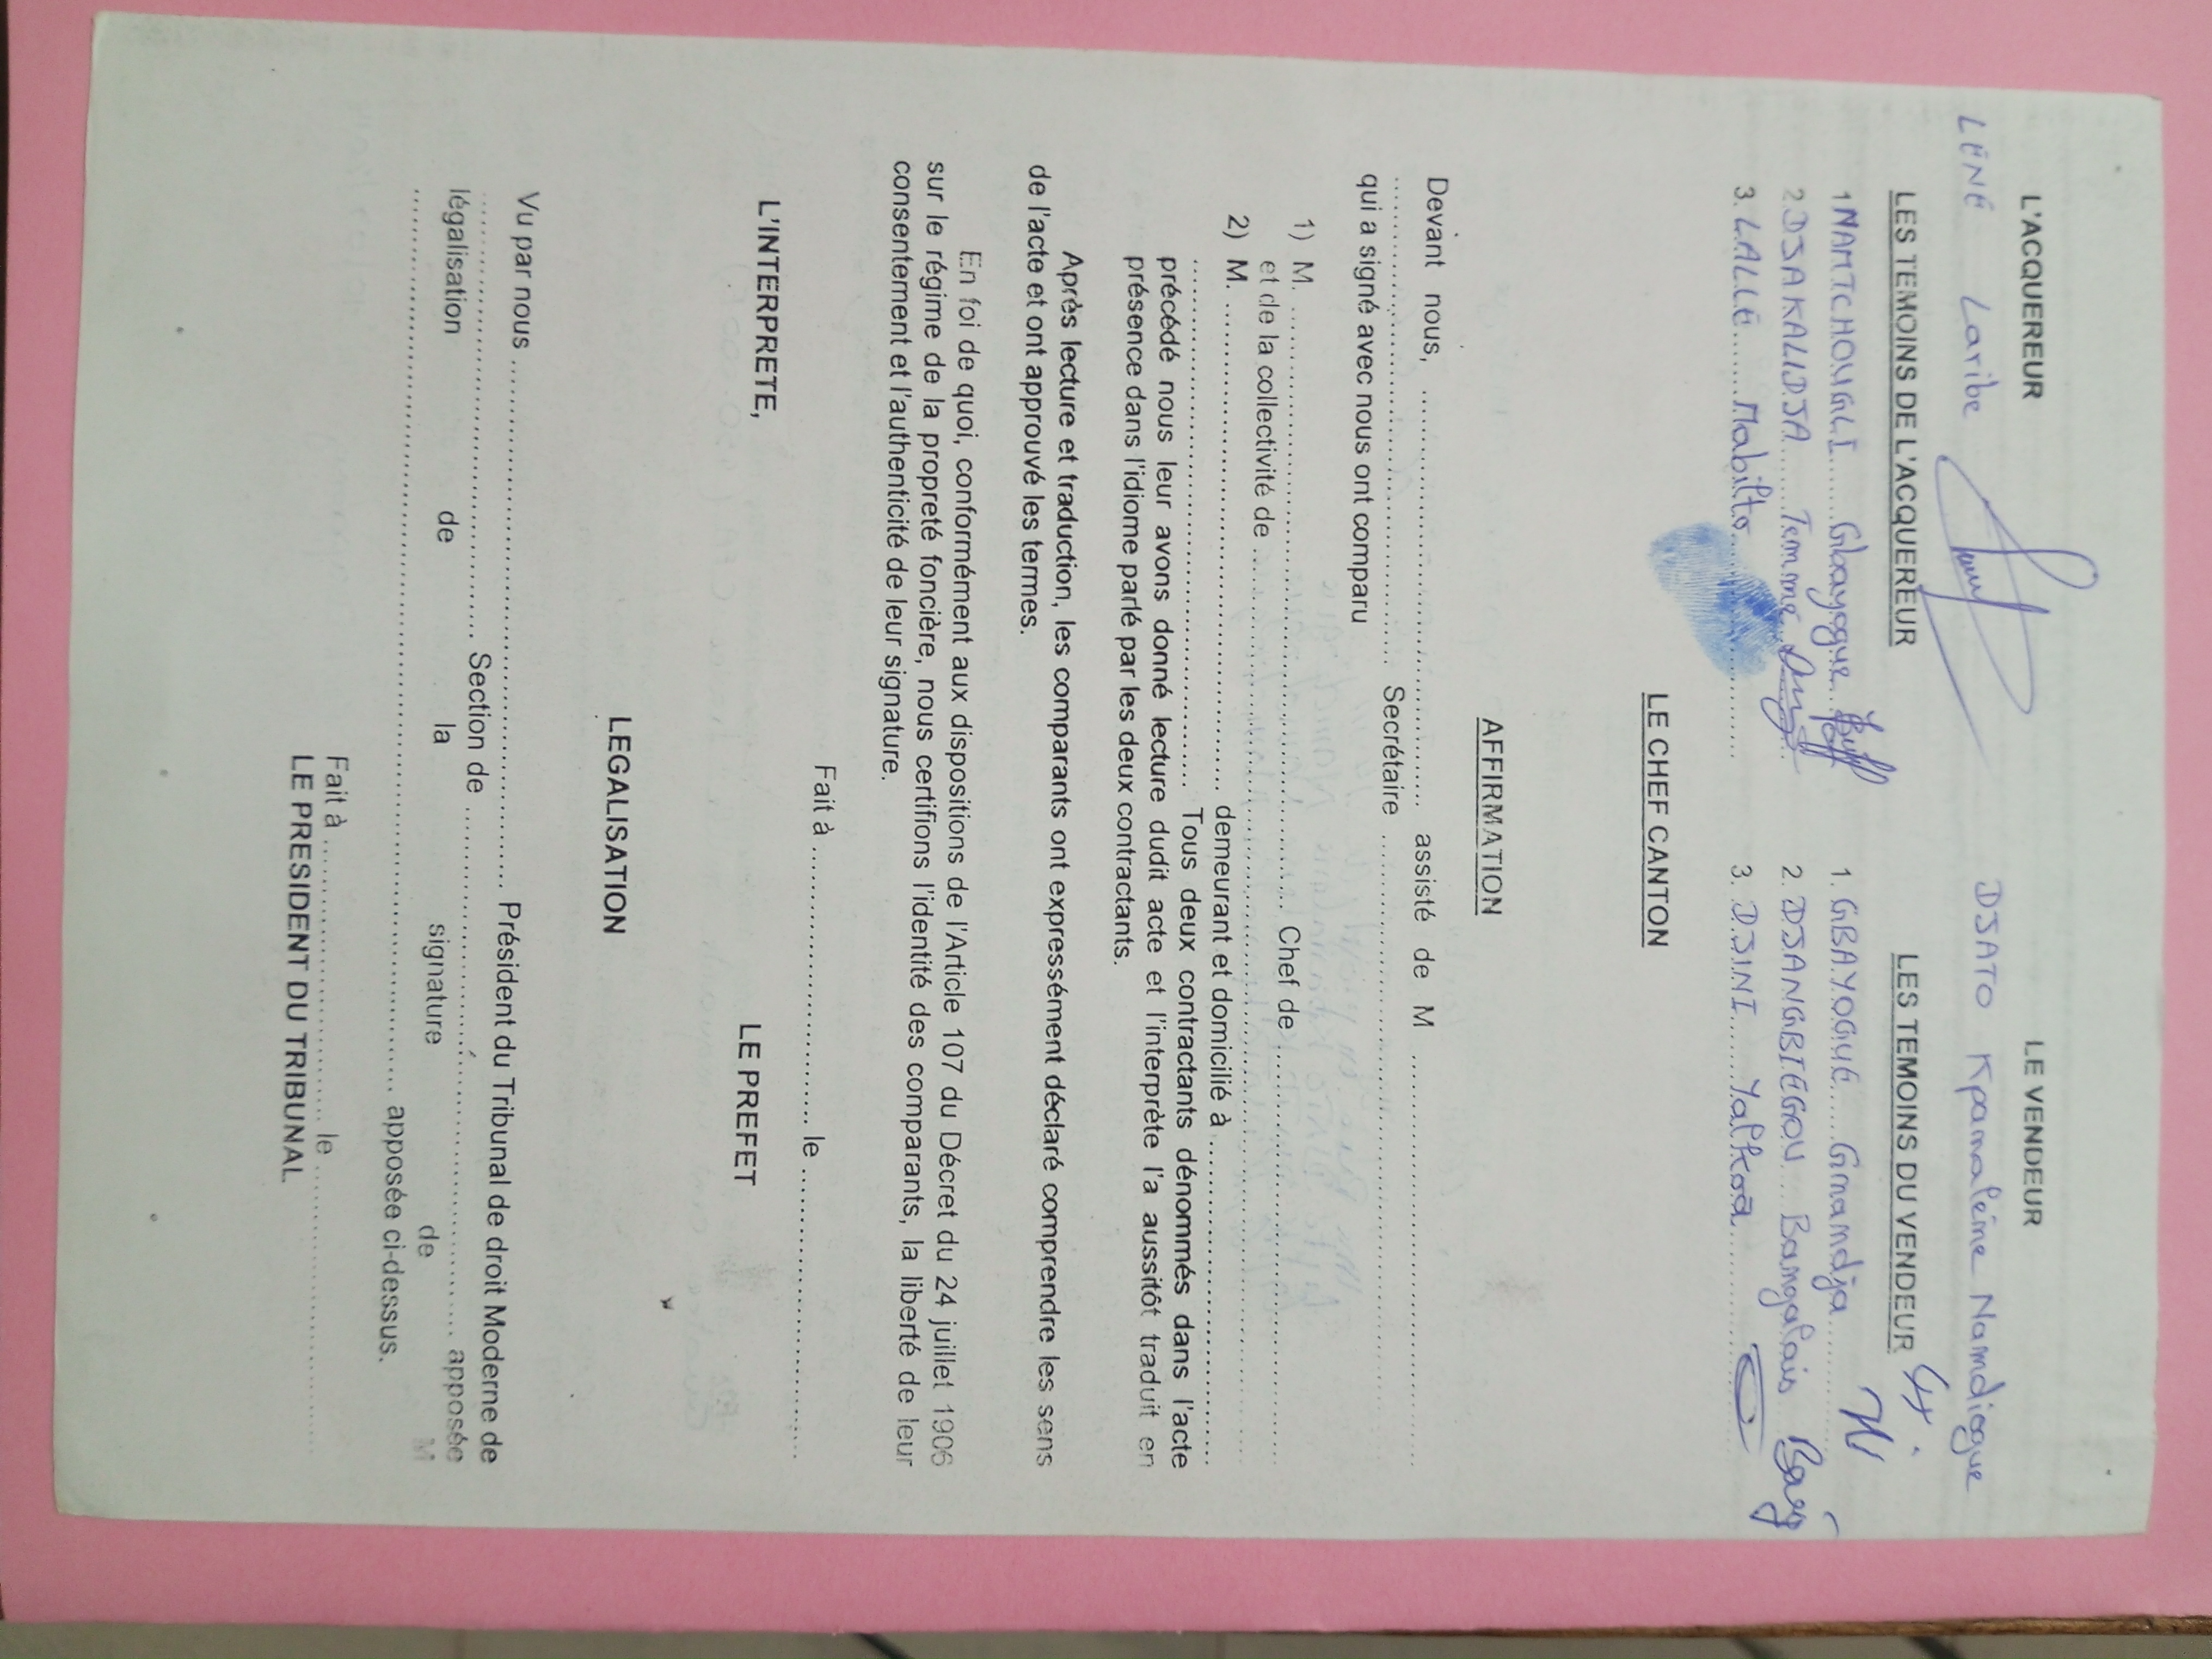 L'ACQUEREUR LE VENDEUR
LENE Laribe DJATO Kpamaleine Namdiogue
LES TEMOINS DE L'ACQUEREUR LES TEMOINS DU VENDEUR
1 NAMTCHOUGLI ...... Gbayogue 1. GBAYOGUE ..... Gnamdja
2. DJAKALIDJA ....... Temme 2. DJANGBIEGOU .... Bamgalais
3. LALLE ...... Mabilto 3. DJINI ...... Yalkoa
LE CHEF CANTON
AFFIRMATION
Devant nous, ........................ assisté de M ........................
........................ Secrétaire ........................
qui a signé avec nous ont comparu
1) M. ........................ Chef de ........................
et de la collectivité de ........................
2) M. ........................ demeurant et domicilié à ........................
........................ Tous deux contractants dénommés dans l'acte
précédé nous leur avons donné lecture dudit acte et l'interprète l'a aussitôt traduit en
présence dans l'idiome parlé par les deux contractants.
Après lecture et traduction, les comparants ont expressément déclaré comprendre les sens
de l'acte et ont approuvé les termes.
En foi de quoi, conformément aux dispositions de l'Article 107 du Décret du 24 juillet 1906
sur le régime de la propreté foncière, nous certifions l'identité des comparants, la liberté de leur
consentement et l'authenticité de leur signature.
Fait à ........................ le ........................
L'INTERPRETE, LE PREFET
LEGALISATION
Vu par nous ........................ Président du Tribunal de droit Moderne de
........................ Section de ........................ apposée
légalisation de la signature de M
........................ apposée ci-dessus.
Fait à ........................ le ........................
LE PRESIDENT DU TRIBUNAL